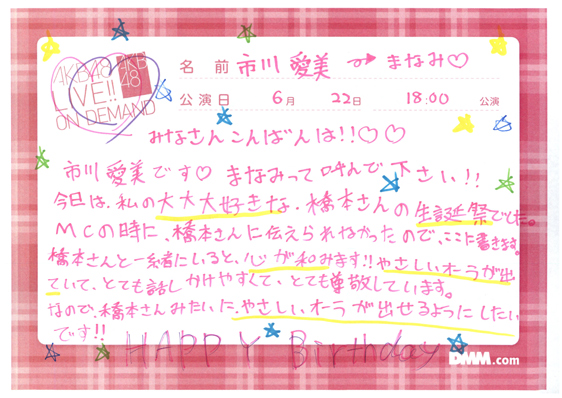 AKB48 AKB48
LIVE!!
ON DEMAND
名 前 市川 愛美 まなみ♡
公演日 6月 22日 18:00 公演
みなさんこんばんは!!♡♡
市川愛美です♡ まなみって呼んで下さい!!
今日は、私の大大大好きな、橋本さんの生誕祭でした。
MCの時に、橋本さんに伝えられなかったので、ここに書きます。
橋本さんと一緒にいると、心が和みます!!やさしいオーラが出
ていて、とても話しかけやすくて、とても尊敬しています。
なので、橋本さんみたいに、やさしいオーラが出せるようにしたい
です!!
HAPPY Birthday
DMM.com